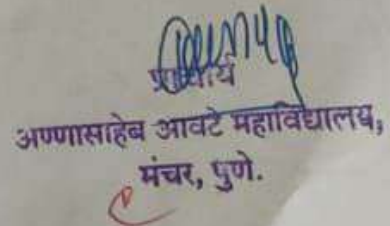 प्राचार्य
अण्णासाहेब आवटे महाविद्यालय,
मंचर, पुणे.